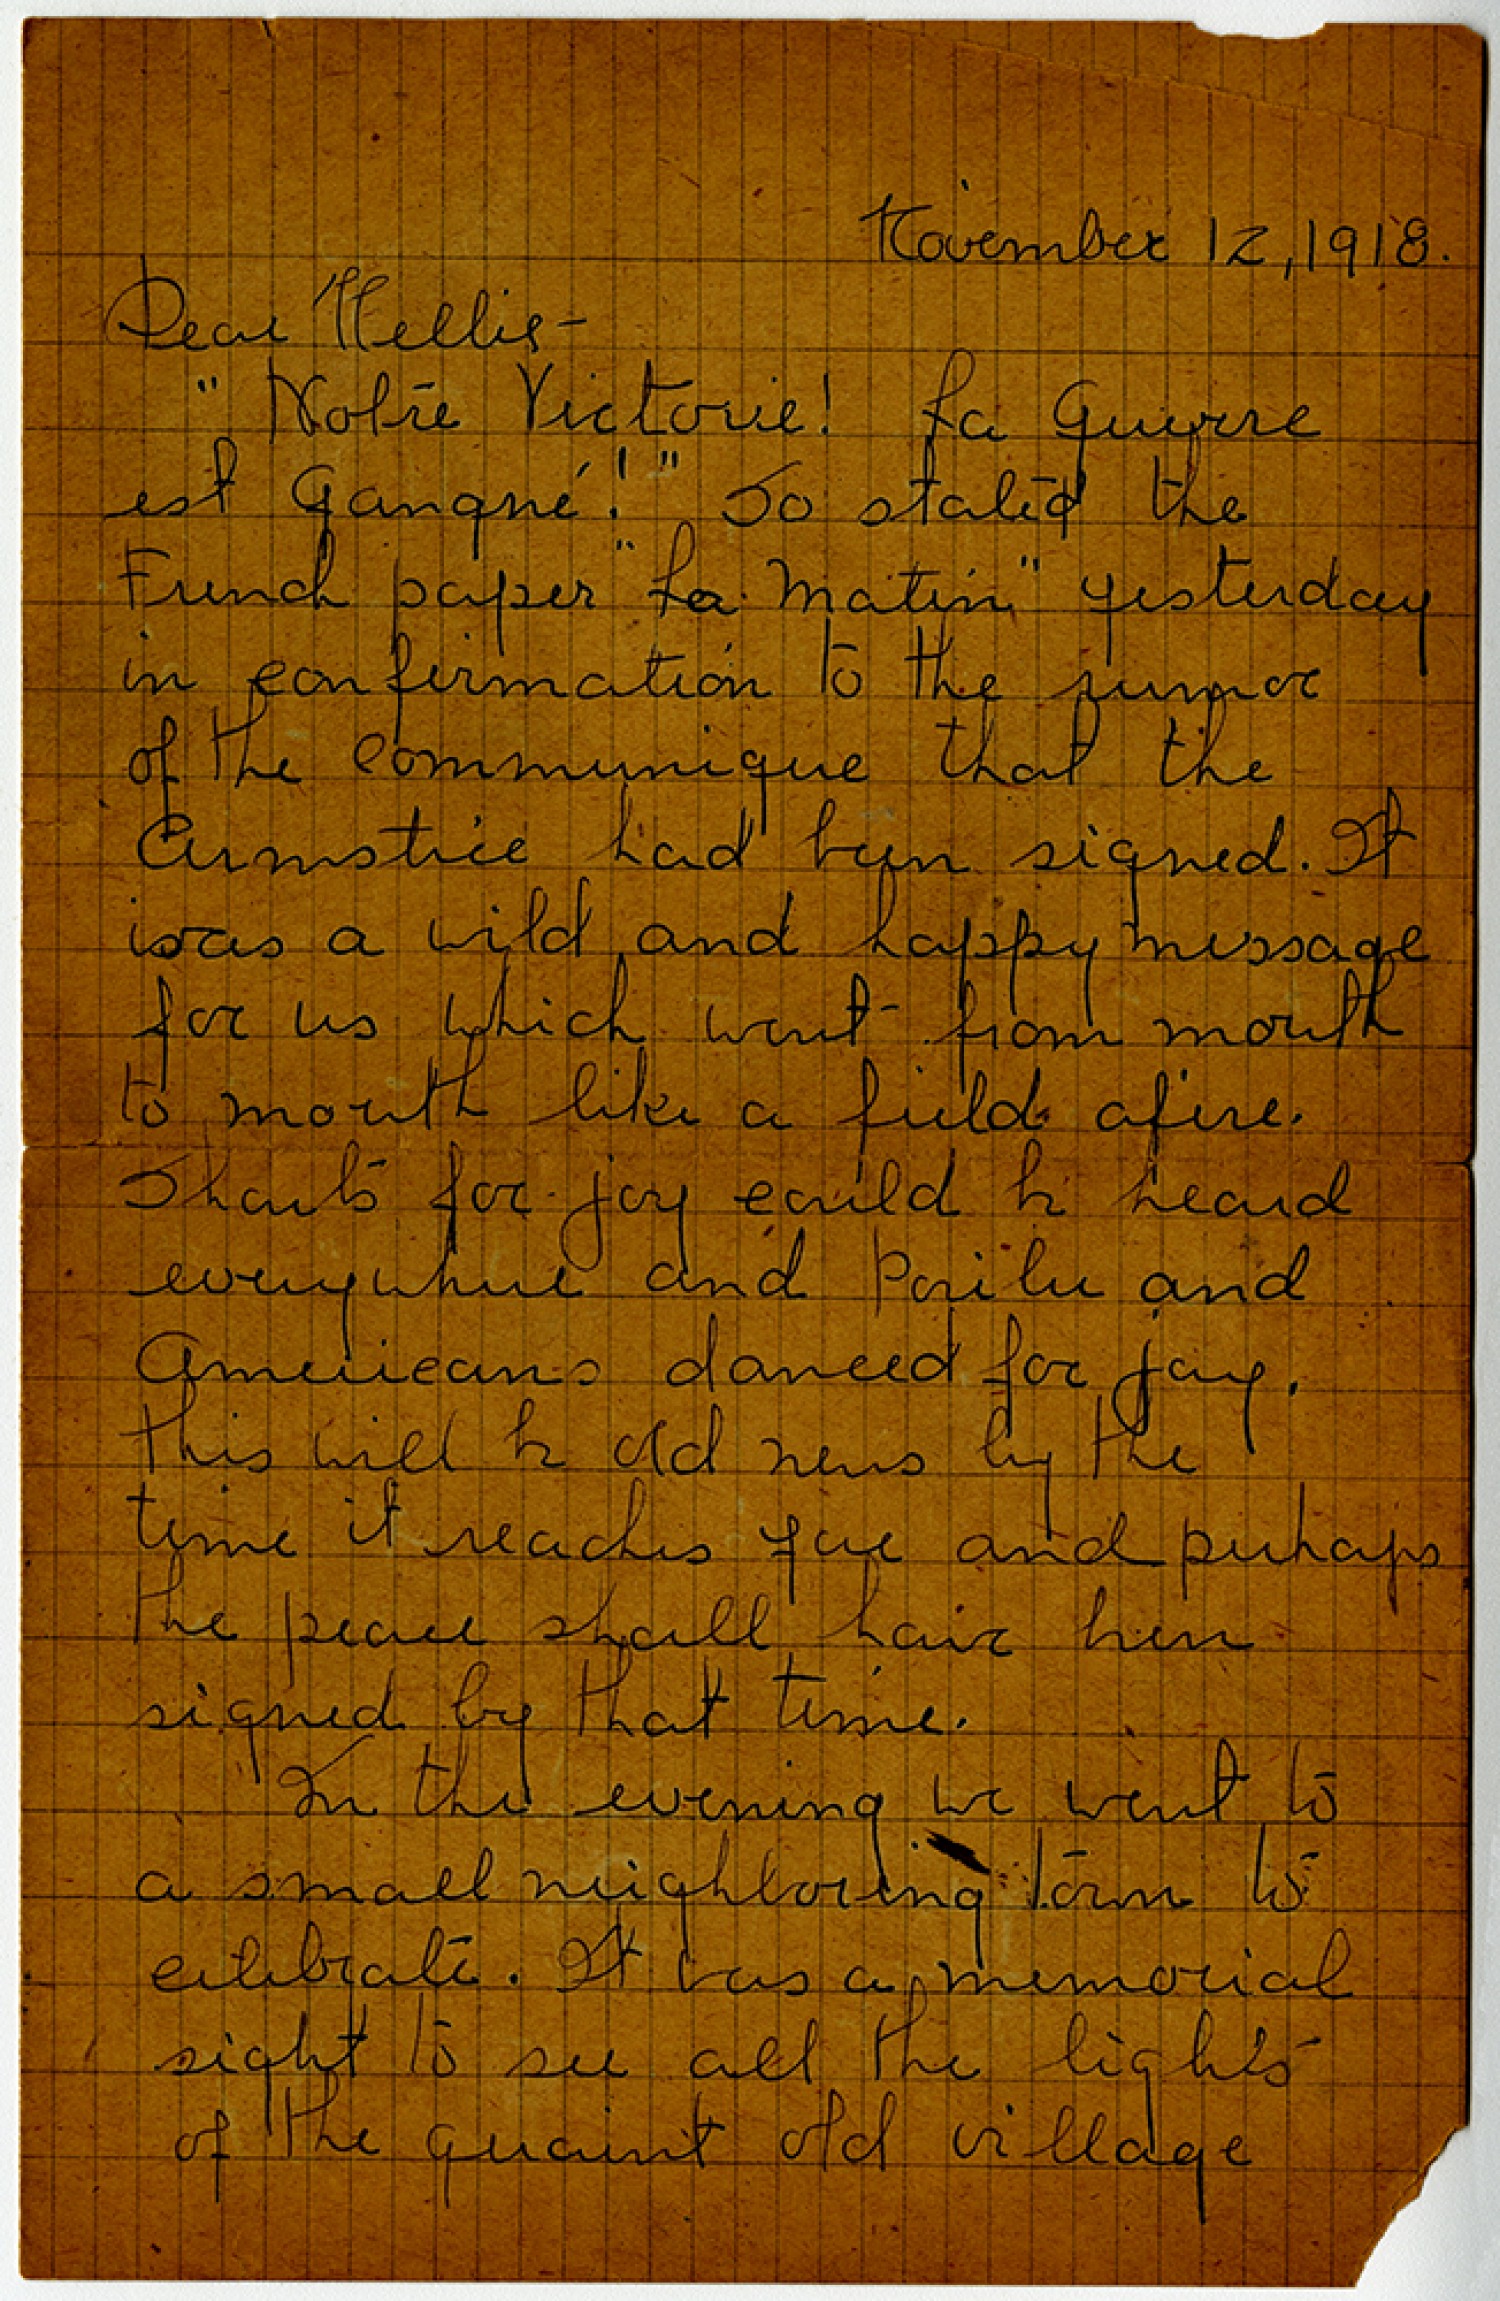 November 12, 1918.
Dear Nellie-
"Notre Victorie! La Guerre
est Gangné!" So stated the
French paper "La Matin" yesterday
in confirmation to the rumor
of the communique that the
Armstice had been signed. It
was a wild and happy message
for us which went from mouth
to mouth like a field afire.
Shouts for joy could be heard
everywhere and Poilu and
Americans danced for joy.
This will be old news by the
time it reaches you and perhaps
the peace shall have been
signed by that time.
In the evening we went to
a small neighboring town to
celebrate. It was a memorial
sight to see all the lights
of the quaint old village